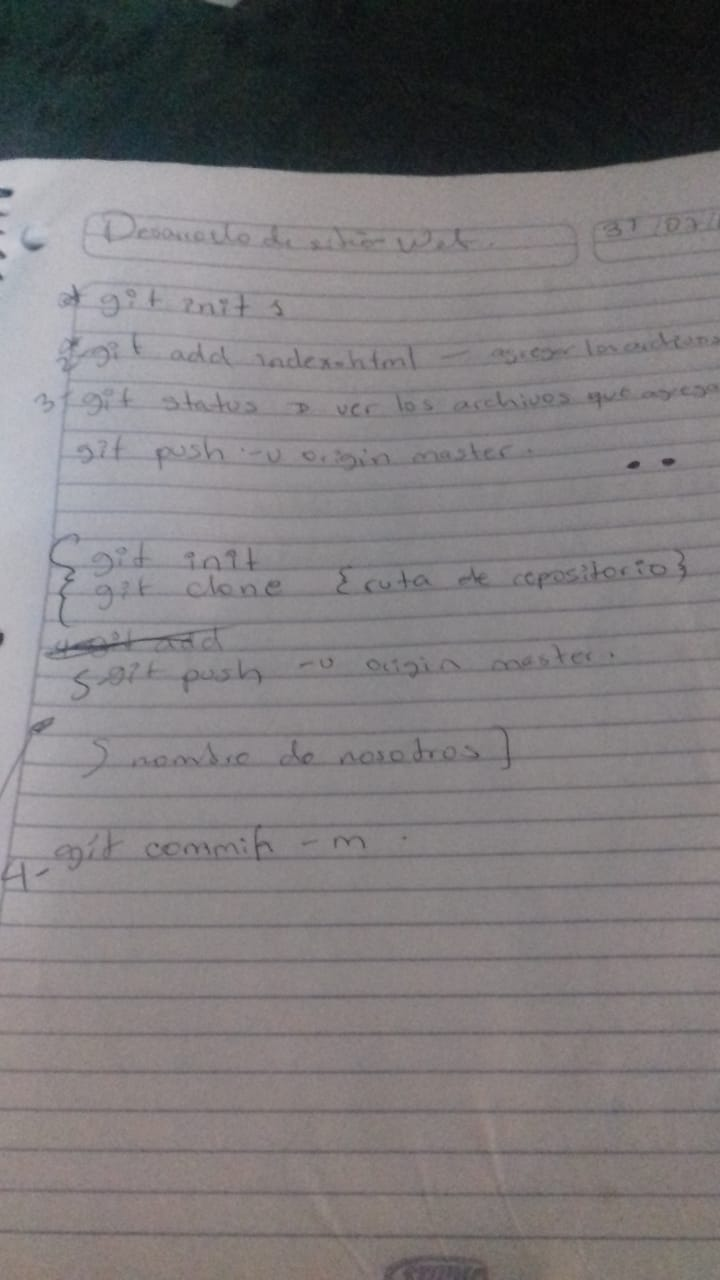 Desarrollo de sitio Web.
31/07/
git init s
2-git add index.html — agregar los
3-git status → ver los archivos que agrega
git push -u origin master.
{git init
{git clone {ruta de repositorio}
git add
5-git push -u origin master.
} nombre de nosotros]
4- git commit -m